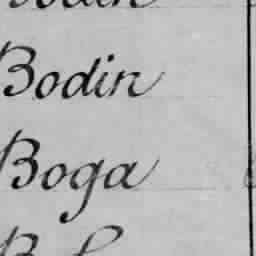 Bodin
Boga